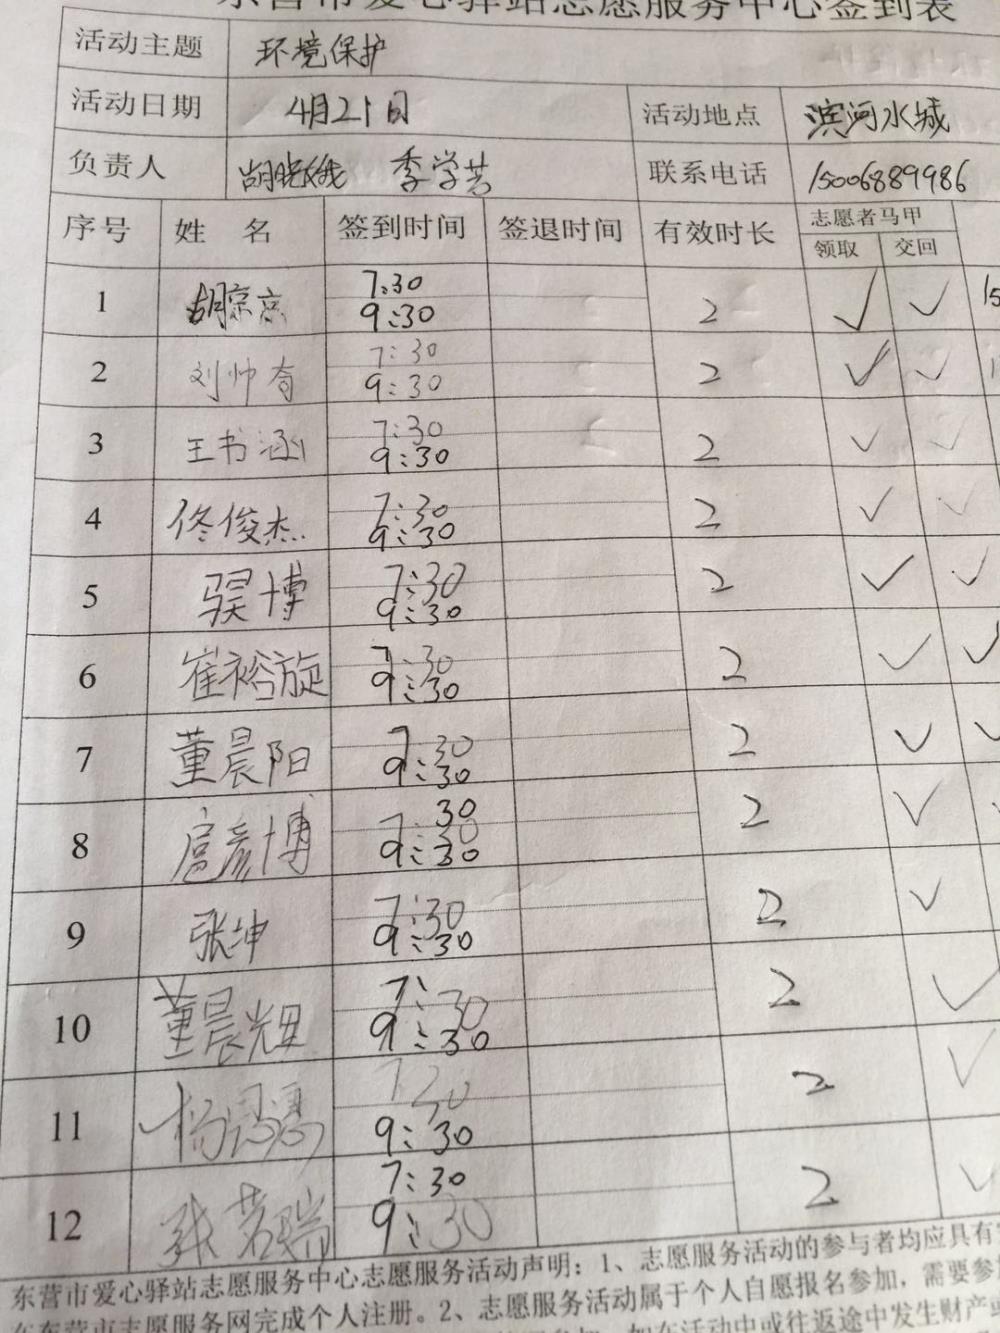 东营市爱心驿站志愿服务中心签到表
活动主题 环境保护
活动日期 4月21日 活动地点 滨河水城
负责人 胡晓娥 季学芸 联系电话 15006889986
序号 姓 名 签到时间 签退时间 有效时长 志愿者马甲
领取 交回
1 胡京京 7:30 9:30 2 ✓ ✓
2 刘帅奇 7:30 9:30 2 ✓ ✓
3 王书涵 7:30 9:30 2 ✓ ✓
4 佟俊杰 7:30 9:30 2 ✓ ✓
5 博 7:30 9:30 2 ✓ ✓
6 崔裕旋 7:30 9:30 2 ✓ ✓
7 董晨阳 7:30 9:30 2 ✓ ✓
8 扈彦博 7:30 9:30 2 ✓
9 张坤 7:30 9:30 2 ✓
10 董晨光 7:30 9:30 2 ✓
11 杨 7:30 9:30 2 ✓
12 张若瑞 7:30 9:30 2 ✓
东营市爱心驿站志愿服务中心志愿服务活动声明：1、志愿服务活动的参与者均应具有
东营市志愿服务网完成个人注册。2、志愿服务活动属于个人自愿报名参加，需要参
如在活动中或往返途中发生财产